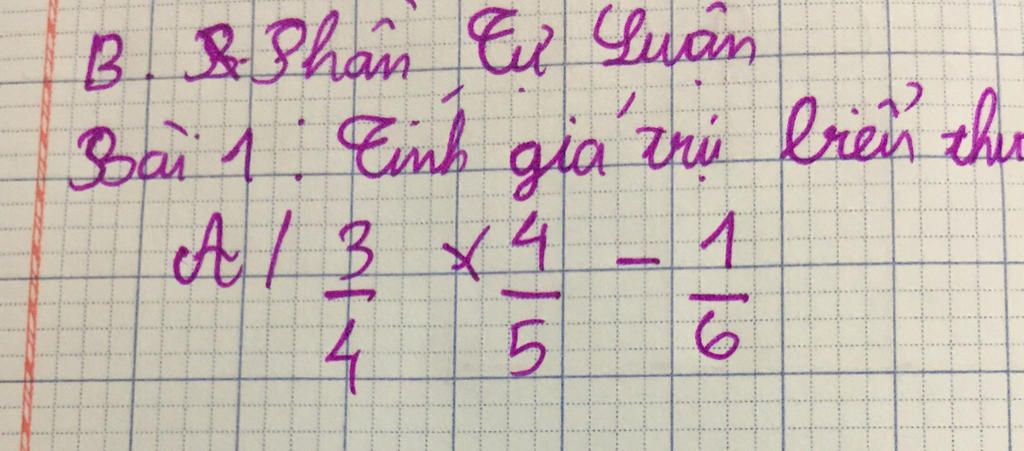 B. Phần Tự Luận
Bài 1: Tính giá trị biểu thứ
A/ 3/4 × 4/5 - 1/6